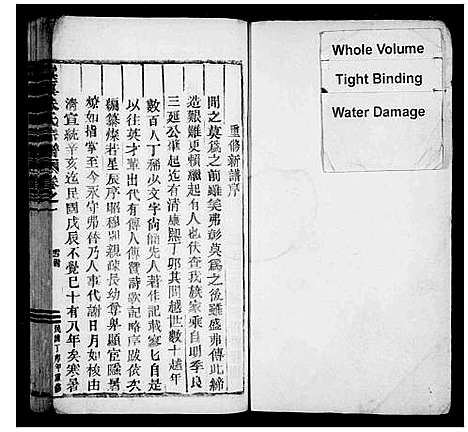 重修新譜序
聞之莫為之前雖美弗彰莫為之後雖盛弗傳此締
造艱難更賴繼起有人也伏查我族家乘自明季良
三延公肇起迄有清康熙丁卯其間越世數十越年
數百人丁稀少文字簡先人著作記載寥匕自是
以往英才輩出代有傳人傳贊詩歌記略序跋依次
編纂燦若星辰序昭穆別親疎長幼尊卑顯宦隱曙
燎如指掌至今永守弗替乃人事代謝日月如梭由
清宣統辛亥迄民國戊辰不覺已十有八年矣寒暑
Whole Volume
Tight Binding
Water Damage